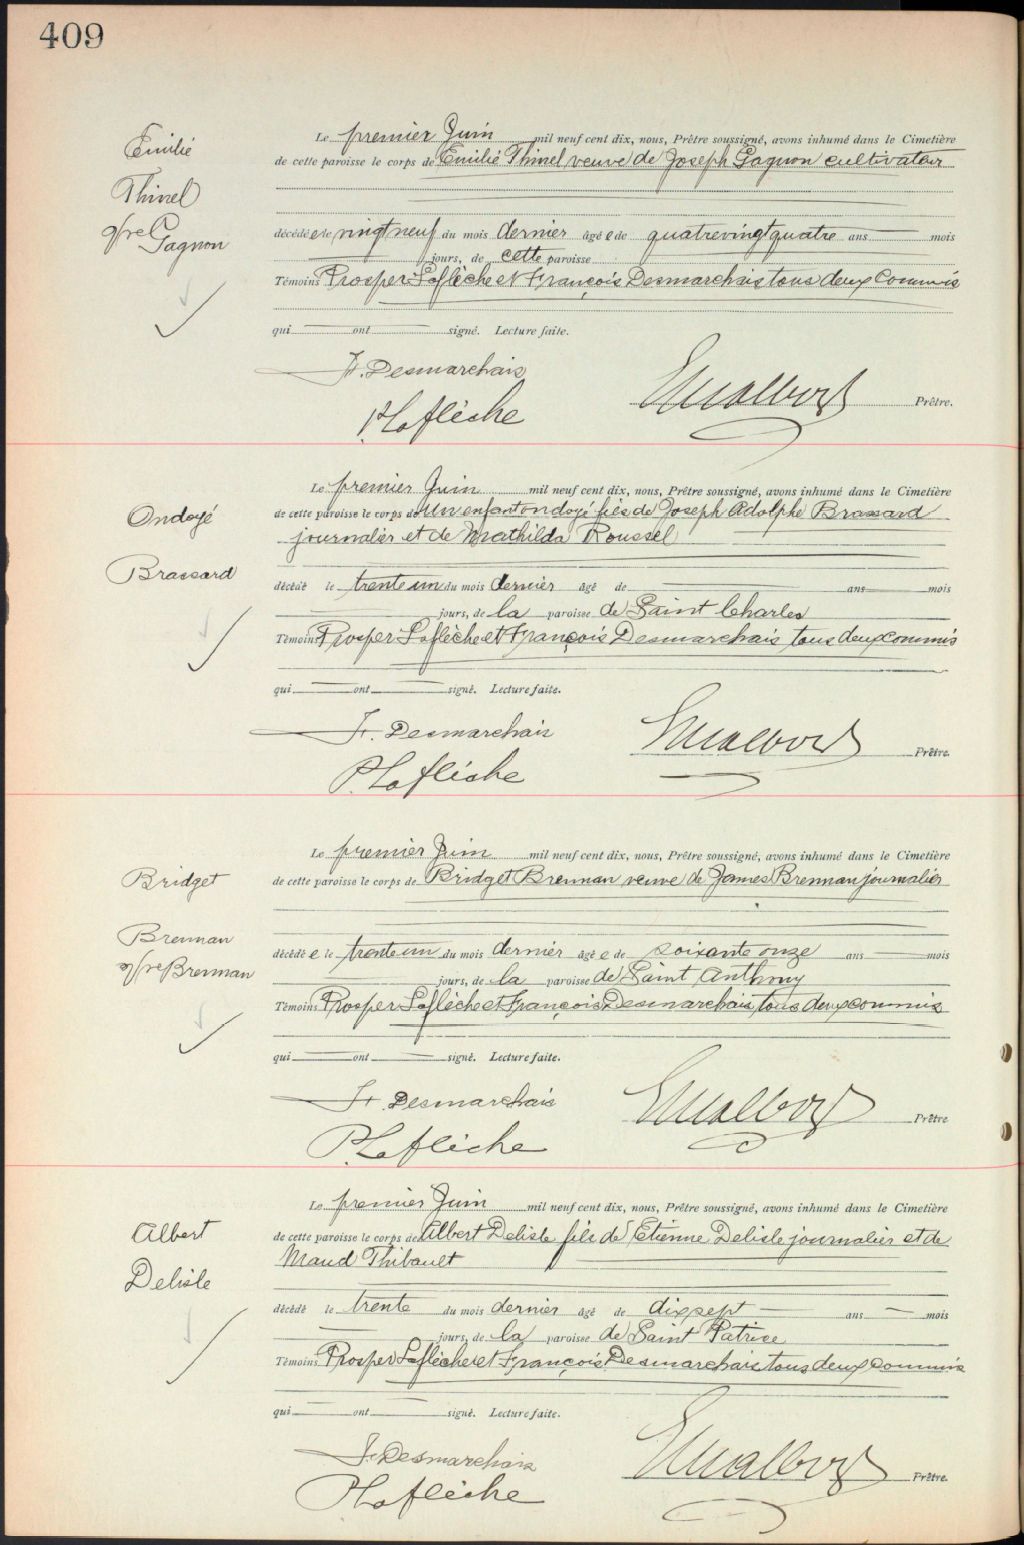 409
Emilie
Thinel
vve
Gagnon
Le premier Juin mil neuf cent dix, nous, Prêtre soussigné, avons inhumé dans le Cimetière
de cette paroisse le corps de Emilie Thinel veuve de Joseph Gagnon cultivateur
décédé e le vingt neuf du mois dernier âgé e de quatrevingtquatre ans mois
jours, de cette paroisse
Témoins Prosper Laflèche et François Desmarchais tous deux commis
qui ont signé. Lecture faite.
F. Desmarchais
P. Laflèche
Prêtre.
Ondoyé
Brassard
Le premier Juin mil neuf cent dix, nous, Prêtre soussigné, avons inhumé dans le Cimetière
de cette paroisse le corps de Un enfant ondoyé fils de Joseph Adolphe Brassard
journalier et de Mathilda Roussel
décédé le trente un du mois dernier âgé de ans mois
jours, de la paroisse de Saint Charles
Témoins Prosper Laflèche et François Desmarchais tous deux commis
qui ont signé. Lecture faite.
F. Desmarchais
P. Laflèche
Prêtre.
Bridget
Brennan
vve Brennan
Le premier Juin mil neuf cent dix, nous, Prêtre soussigné, avons inhumé dans le Cimetière
de cette paroisse le corps de Bridget Brennan veuve de James Brennan journalier
décédé e le trente un du mois dernier âgé e de soixante onze ans mois
jours, de la paroisse de Saint Anthony
Témoins Prosper Laflèche et François Desmarchais tous deux commis
qui ont signé. Lecture faite.
F. Desmarchais
P. Laflèche
Prêtre
Albert
Delisle
Le premier Juin mil neuf cent dix, nous, Prêtre soussigné, avons inhumé dans le Cimetière
de cette paroisse le corps de Albert Delisle fils de Etienne Delisle journalier et de
Maud Thibault
décédé le trente du mois dernier âgé de dix sept ans mois
jours, de la paroisse de Saint Patrice
Témoins Prosper Laflèche et François Desmarchais tous deux commis
qui ont signé. Lecture faite.
F. Desmarchais
P. Laflèche
Prêtre.